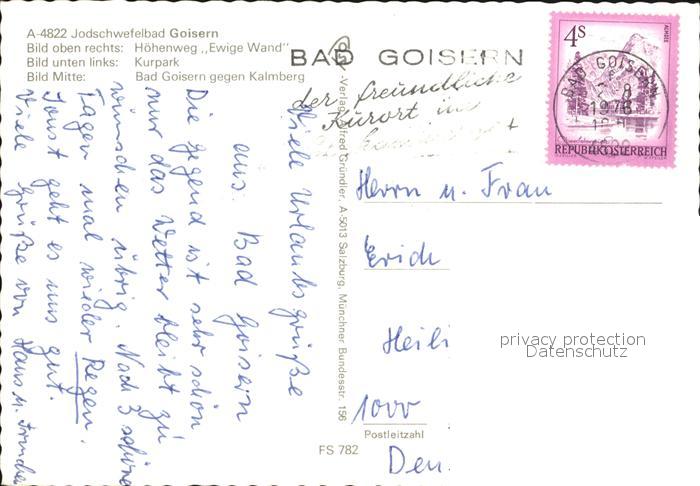 A-4822 Jodschwefelbad Goisern
Bild oben rechts: Höhenweg „Ewige Wand"
Bild unten links: Kurpark
Bild Mitte: Bad Goisern gegen Kalmberg
BAD GOISERN
der freundliche
Kurort im
4S
BAD GOISERN
1978
REPUBLIK ÖSTERREICH
Viele Urlaubsgrüße
aus Bad Goisern
Die Gegend ist sehr schön
nur das Wetter bleibt zu
wünschen übrig. Nach 3 schönen
Tagen mal wieder Regen.
Sonst geht es uns gut.
Viele Grüße von Hans u.
-Verlag Alfred Gründler, A-5013 Salzburg, Münchner Bundesstr. 156
Herrn u. Frau
Erich
Heili
1000
Postleitzahl
Den
FS 782
privacy protection
Datenschutz